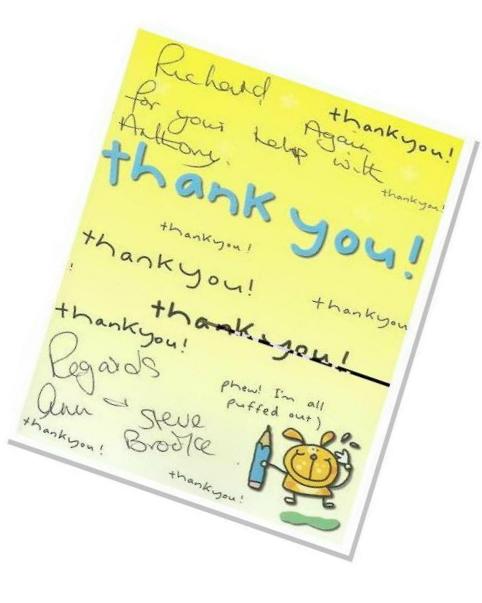 Richard
thankyou!
Again
for your help with
Anthony.
thankyou!
thank you!
thankyou!
thankyou!
thankyou
!
thank you!
thankyou!
Regards
phew! I'm all
puffed out)
Ann & Steve
thankyou!
thankyou!